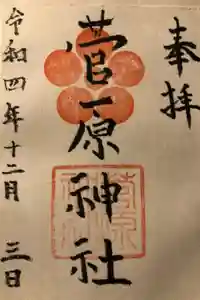 奉拝
菅原神社
令和四年十二月三日